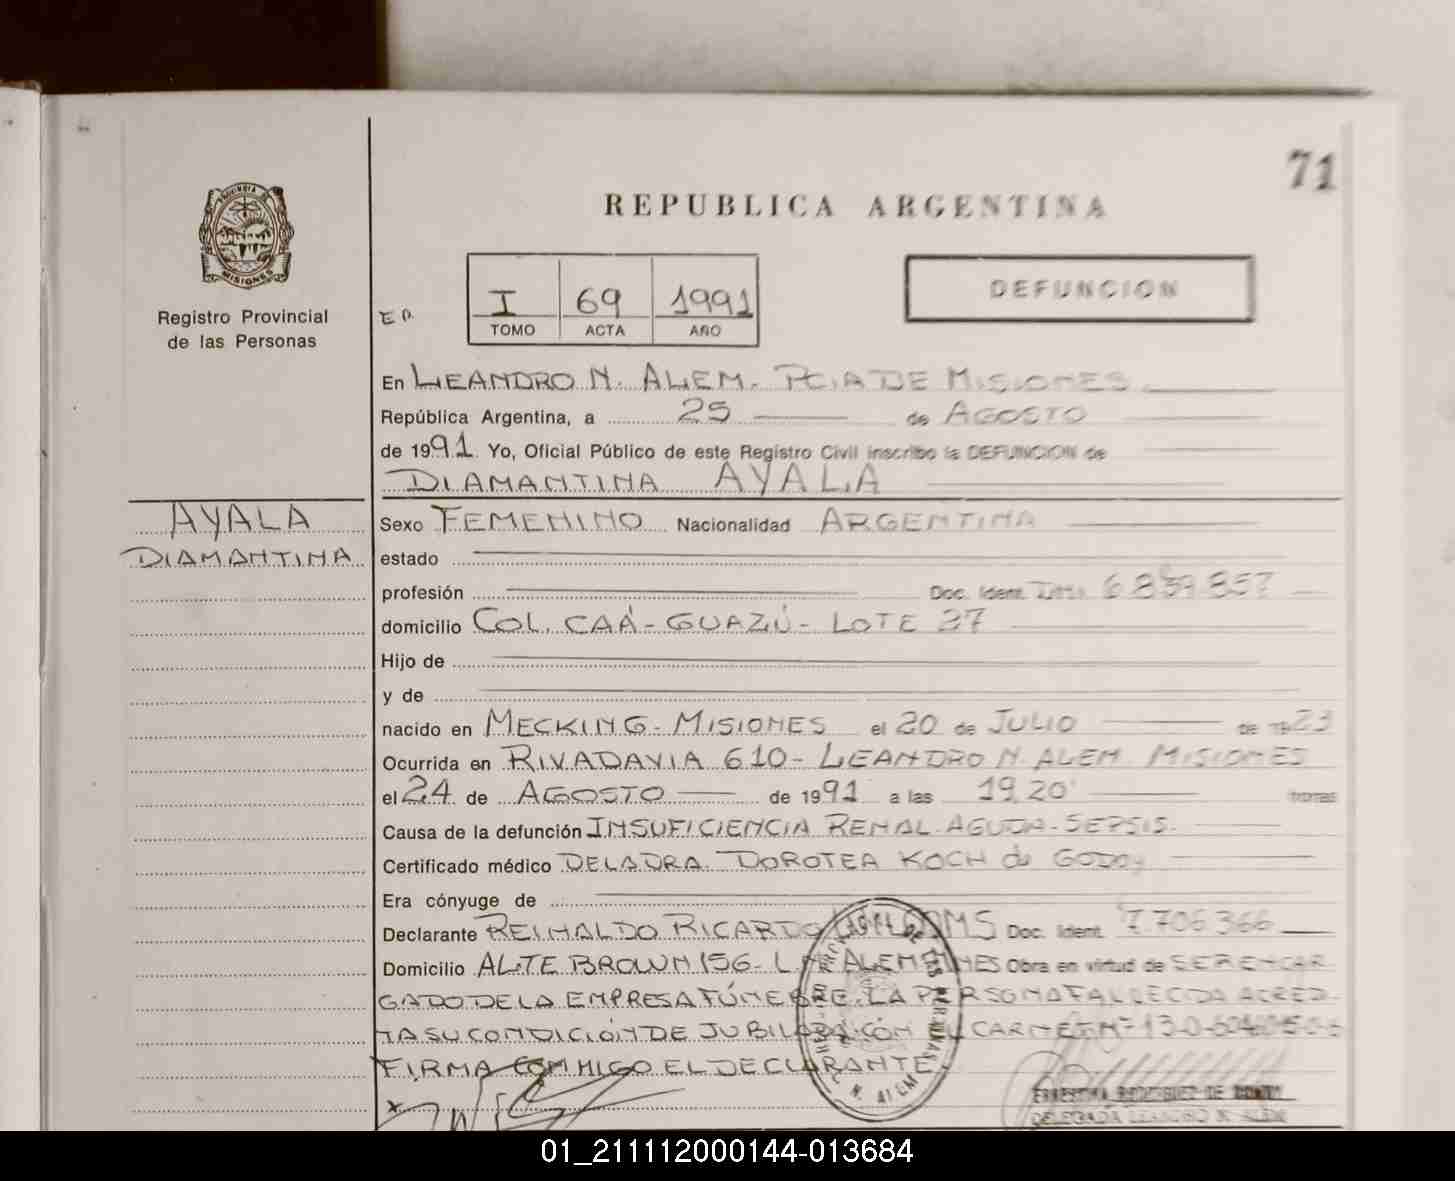 71
PROVINCIA DE
MISIONES
REPUBLICA ARGENTINA
Registro Provincial
de las Personas
I 69 1991
TOMO ACTA AÑO
DEFUNCION
En LEANDRO N. ALEM. PCIA DE MISIONES
República Argentina, a 25 de AGOSTO
de 1991. Yo, Oficial Público de este Registro Civil inscribo la DEFUNCION de
DIAMANTINA AYALA
AYALA
DIAMANTINA
Sexo FEMENINO Nacionalidad ARGENTINA
estado
profesión Doc. Ident. 6.839.857
domicilio COL. CAÁ-GUAZÚ- LOTE 27
Hijo de
y de
nacido en MECKING-MISIONES el 20 de JULIO de 1923
Ocurrida en RIVADAVIA 610- LEANDRO N ALEM MISIONES
el 24 de AGOSTO de 1991 a las 19,20 horas
Causa de la defunción INSUFICIENCIA RENAL AGUDA-SEPSIS.
Certificado médico DE LA DRA. DOROTEA KOCH de GODOY
Era cónyuge de
Declarante REINALDO RICARDO Doc. Ident. 7.706.366
Domicilio ALTE BROWN 156- L. N. ALEM MNES Obra en virtud de SER ENCAR
GADO DE LA EMPRESA FÚNEBRE. LA PERSONA FALLECIDA ACREDI
TA SU CONDICIÓN DE JUBILADA CON CARNET Nº
FIRMA CONMIGO EL DECLARANTE
N. ALEM
DELEGADA LEANDRO N. ALEM
01_211112000144-013684